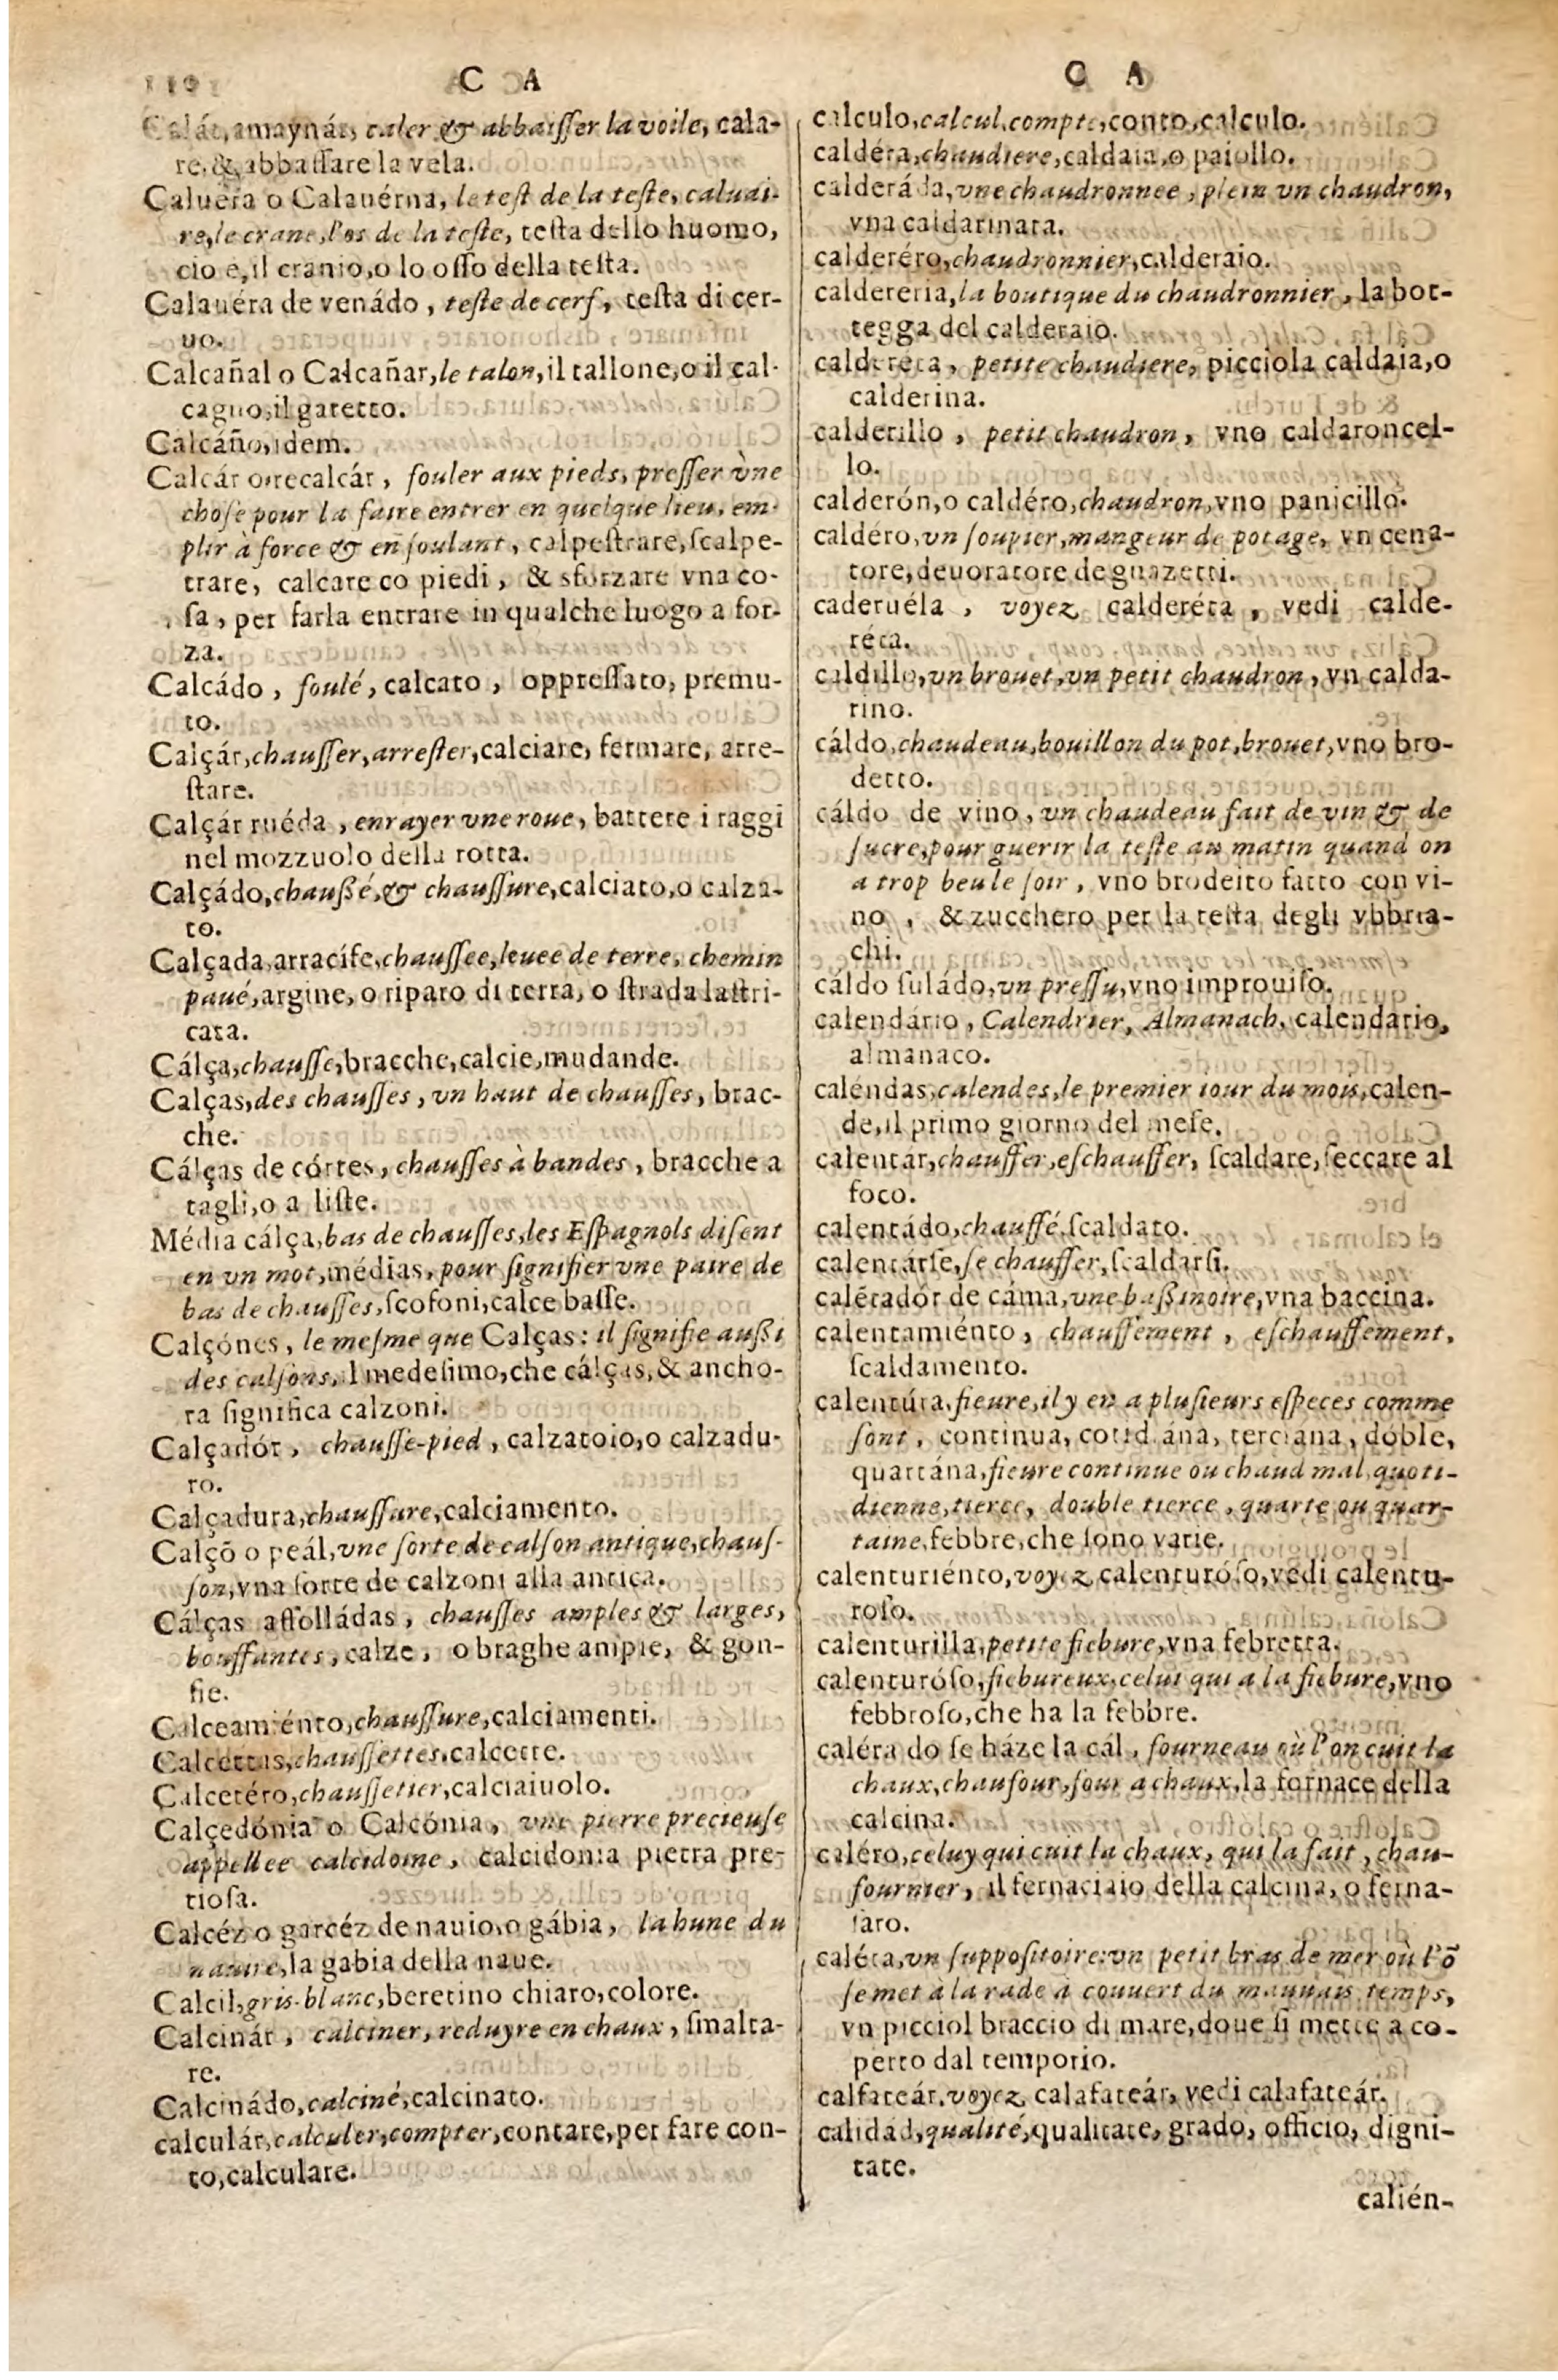 C A
Calár, amaynár, caler & abbaiſſer la voile, cala-
re, & abbaſſare la vela.
Caluera o Calauérna, le teſt de la teſte, caluai-
re, le crane, l'os de la teſte, teſta dello huomo,
cio e, il cranio, o lo oſſo della teſta.
Calauéra de venádo, teſte de cerf, teſta di cer-
uo.
Calcañal o Calcañar, le talon, il tallone, o il cal-
cagno, il garetto.
Calcáño, idem.
Calcár o recalcár, fouler aux pieds, preſſer vne
choſe pour la faire entrer en quelque lieu, em-
plir à force & en foulant, calpeſtrare, ſcalpe-
trare, calcare co piedi, & sforzare vna co-
ſa, per farla entrare in qualche luogo a for-
za.
Calcádo, foulé, calcato, oppreſſato, premu-
to.
Calçár, chauſſer, arreſter, calciare, fermare, arre-
ſtare.
Calçár ruéda, enrayer vne roue, battere i raggi
nel mozzuolo della rotta.
Calçádo, chauſsé, & chauſſure, calciato, o calza-
to.
Calçada, arracife, chauſſee, leuee de terre, chemin
paué, argine, o riparo di terra, o ſtrada laſtri-
cata.
Cálça, chauſſe, bracche, calcie, mudande.
Calças, des chauſſes, vn haut de chauſſes, brac-
che.
Cálças de córtes, chauſſes à bandes, bracche a
tagli, o a liſte.
Média cálça, bas de chauſſes, les Eſpagnols diſent
en vn mot, médias, pour ſignifier vne paire de
bas de chauſſes, ſcofoni, calce baſſe.
Calçónes, le meſme que Calças: il ſignifie auſsi
des calſons, il medeſimo, che cálças, & ancho-
ra ſignifica calzoni.
Calçadór, chauſſe-pied, calzatoio, o calzadu-
ro.
Calçadura, chauſſure, calciamento.
Calçō o peál, vne ſorte de calſon antique, chauſ-
ſon, vna ſorte de calzoni alla antica.
Cálças aſſolládas, chauſſes amples & larges,
bouffantes, calze, o braghe ampie, & gon-
fie.
Calceamiénto, chauſſure, calciamenti.
Calcettas, chauſſettes, calcette.
Calcetéro, chauſſetier, calciaiuolo.
Calçedónia o Calcónia, vne pierre precieuſe
appellee calcidoine, calcidonia pietra pre-
tioſa.
Calcéz o garcéz de nauio, o gábia, la hune du
nauire, la gabia della naue.
Calcil, gris-blanc, beretino chiaro, colore.
Calcinár, calciner, reduyre en chaux, ſmalta-
re.
Calcinádo, calciné, calcinato.
calculár, calculer, compter, contare, per fare con-
to, calculare.
C A
calculo, calcul, compte, conto, calculo.
caldéra, chaudiere, caldaia, o paiollo.
calderáda, vne chaudronnee, plein vn chaudron,
vna caldarinata.
calderéro, chaudronnier, calderaio.
caldereria, la boutique du chaudronnier, la bot-
tegga del calderaio.
caldereta, petite chaudiere, picciola caldaia, o
calderina.
calderillo, petit chaudron, vno caldaroncel-
lo.
calderón, o caldéro, chaudron, vno panicillo.
caldéro, vn ſoupier, mangeur de potage, vn cena-
tore, deuoratore de guazetti.
caderuéla, voyez calderéta, vedi calde-
réta.
caldillo, vn brouet, vn petit chaudron, vn calda-
rino.
cáldo, chaudeau, bouillon du pot, brouet, vno bro-
detto.
cáldo de vino, vn chaudeau fait de vin & de
ſucre, pour guerir la teſte au matin quand on
a trop beu le ſoir, vno brodeito fatto con vi-
no, & zucchero per la teſta degli vbbria-
chi.
cáldo ſuládo, vn preſſu, vno improuiſo.
calendário, Calendrier, Almanach, calendario,
almanaco.
caléndas, calendes, le premier iour du mois, calen-
de, il primo giorno del meſe.
calentár, chauffer, eſchauffer, ſcaldare, ſeccare al
foco.
calentádo, chauffé, ſcaldato.
calentárſe, ſe chauffer, ſcaldarſi.
calētadór de cáma, vne baſsinoire, vna baccina.
calentamiénto, chauffement, eſchauffement,
ſcaldamento.
calentúra, fieure, il y en a pluſieurs eſpeces comme
ſont, continua, cotidiána, terciana, dóble,
quartána, fieure continue ou chaud mal, quoti-
dienne, tierce, double tierce, quarte ou quar-
taine, febbre, che ſono varie.
calenturiénto, voyez calenturóſo, vedi calentu-
roſo.
calenturilla, petite fiebure, vna febretta.
calenturóſo, fiebureux, celui qui a la fiebure, vno
febbroſo, che ha la febbre.
caléra do ſe háze la cál, fourneau où l'on cuit la
chaux, chaufour, four a chaux, la fornace della
calcina.
caléro, celuy qui cuit la chaux, qui la fait, chau-
fournier, il fernaciaio della calcina, o ferna-
ſaro.
caléta, vn ſuppoſitoire: vn petit bras de mer où l'ō
ſe met à la rade à couuert du mauuais temps,
vn picciol braccio di mare, doue ſi mette a co-
perto dal temporio.
calfateár, voyez calafateár, vedi calafateár.
calidad, qualité, qualitate, grado, officio, digni-
tate.
calién-